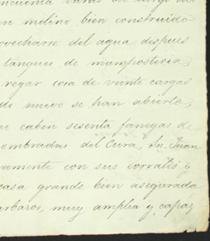 cincuenta varas de largo
un molino bien construido
ovecharse del agua despues
tanques de mamposteria,
regar cosa de veinte cargas
de nuevo se han abierto,
e caben sesenta fanegas de
embradas del Cura, Sn. Juan
amente con sus corrales y
casa grande bien asegurada
arbaros, muy amplia y capas